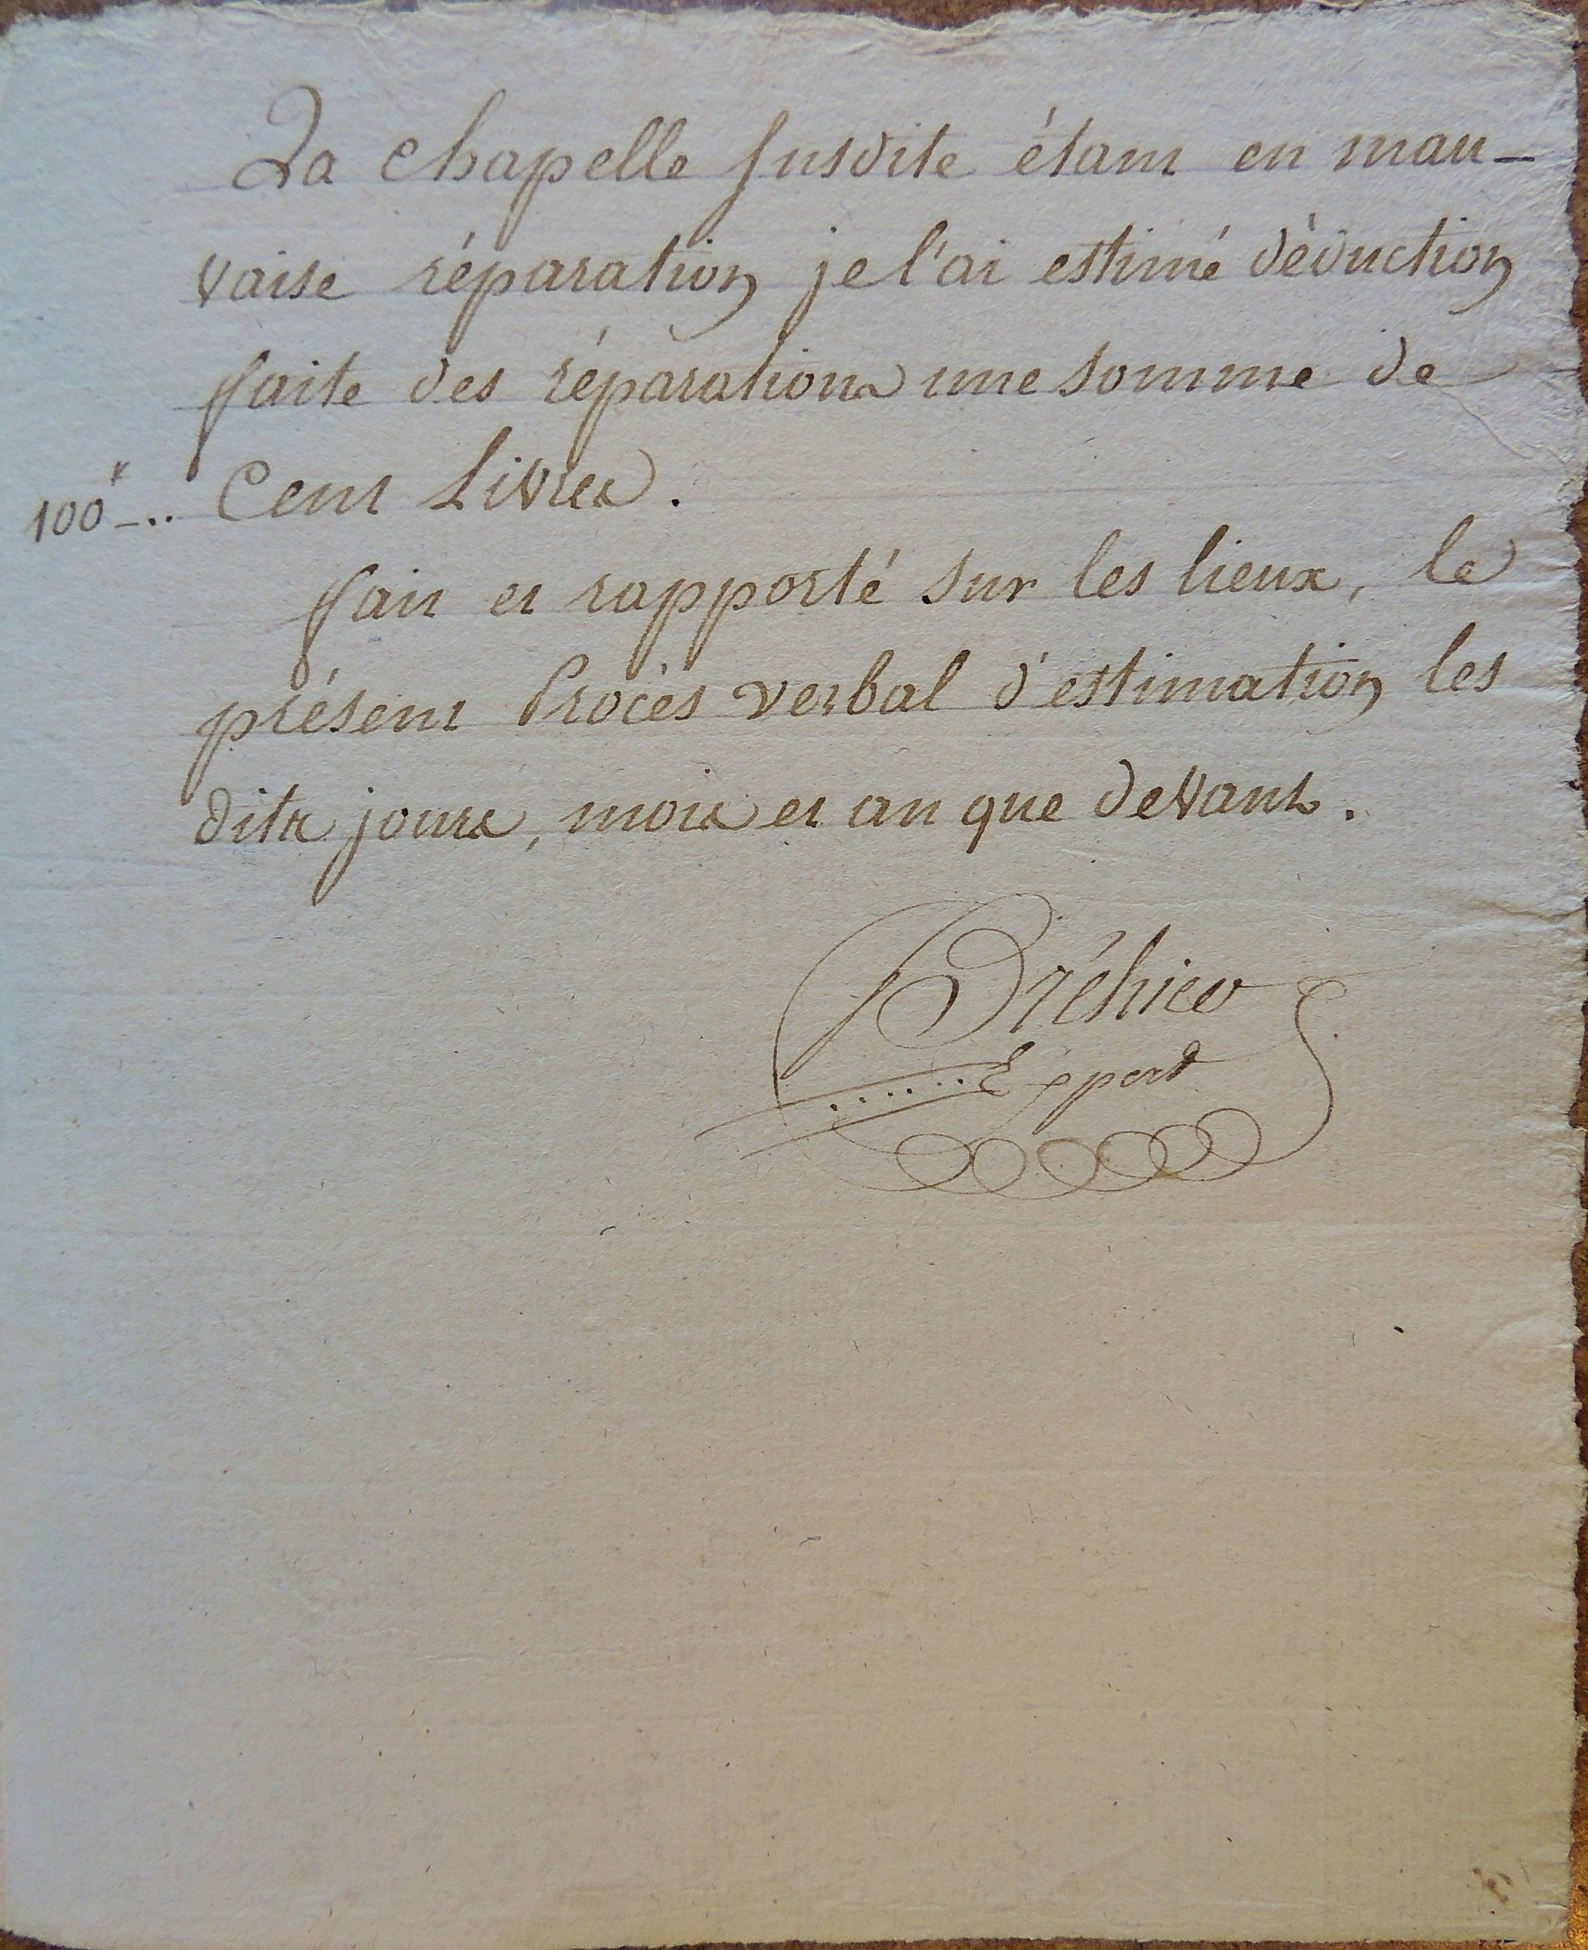 La chapelle susdite étant en mau-
vaise réparation je l'ai estimé déduction
faite des réparations une somme de
100# -.. Cent Livres.
fait et rapporté sur les lieux, le
présent Procès verbal d'estimation les
dits jours, mois et an que devant.
Bréhier
Expert